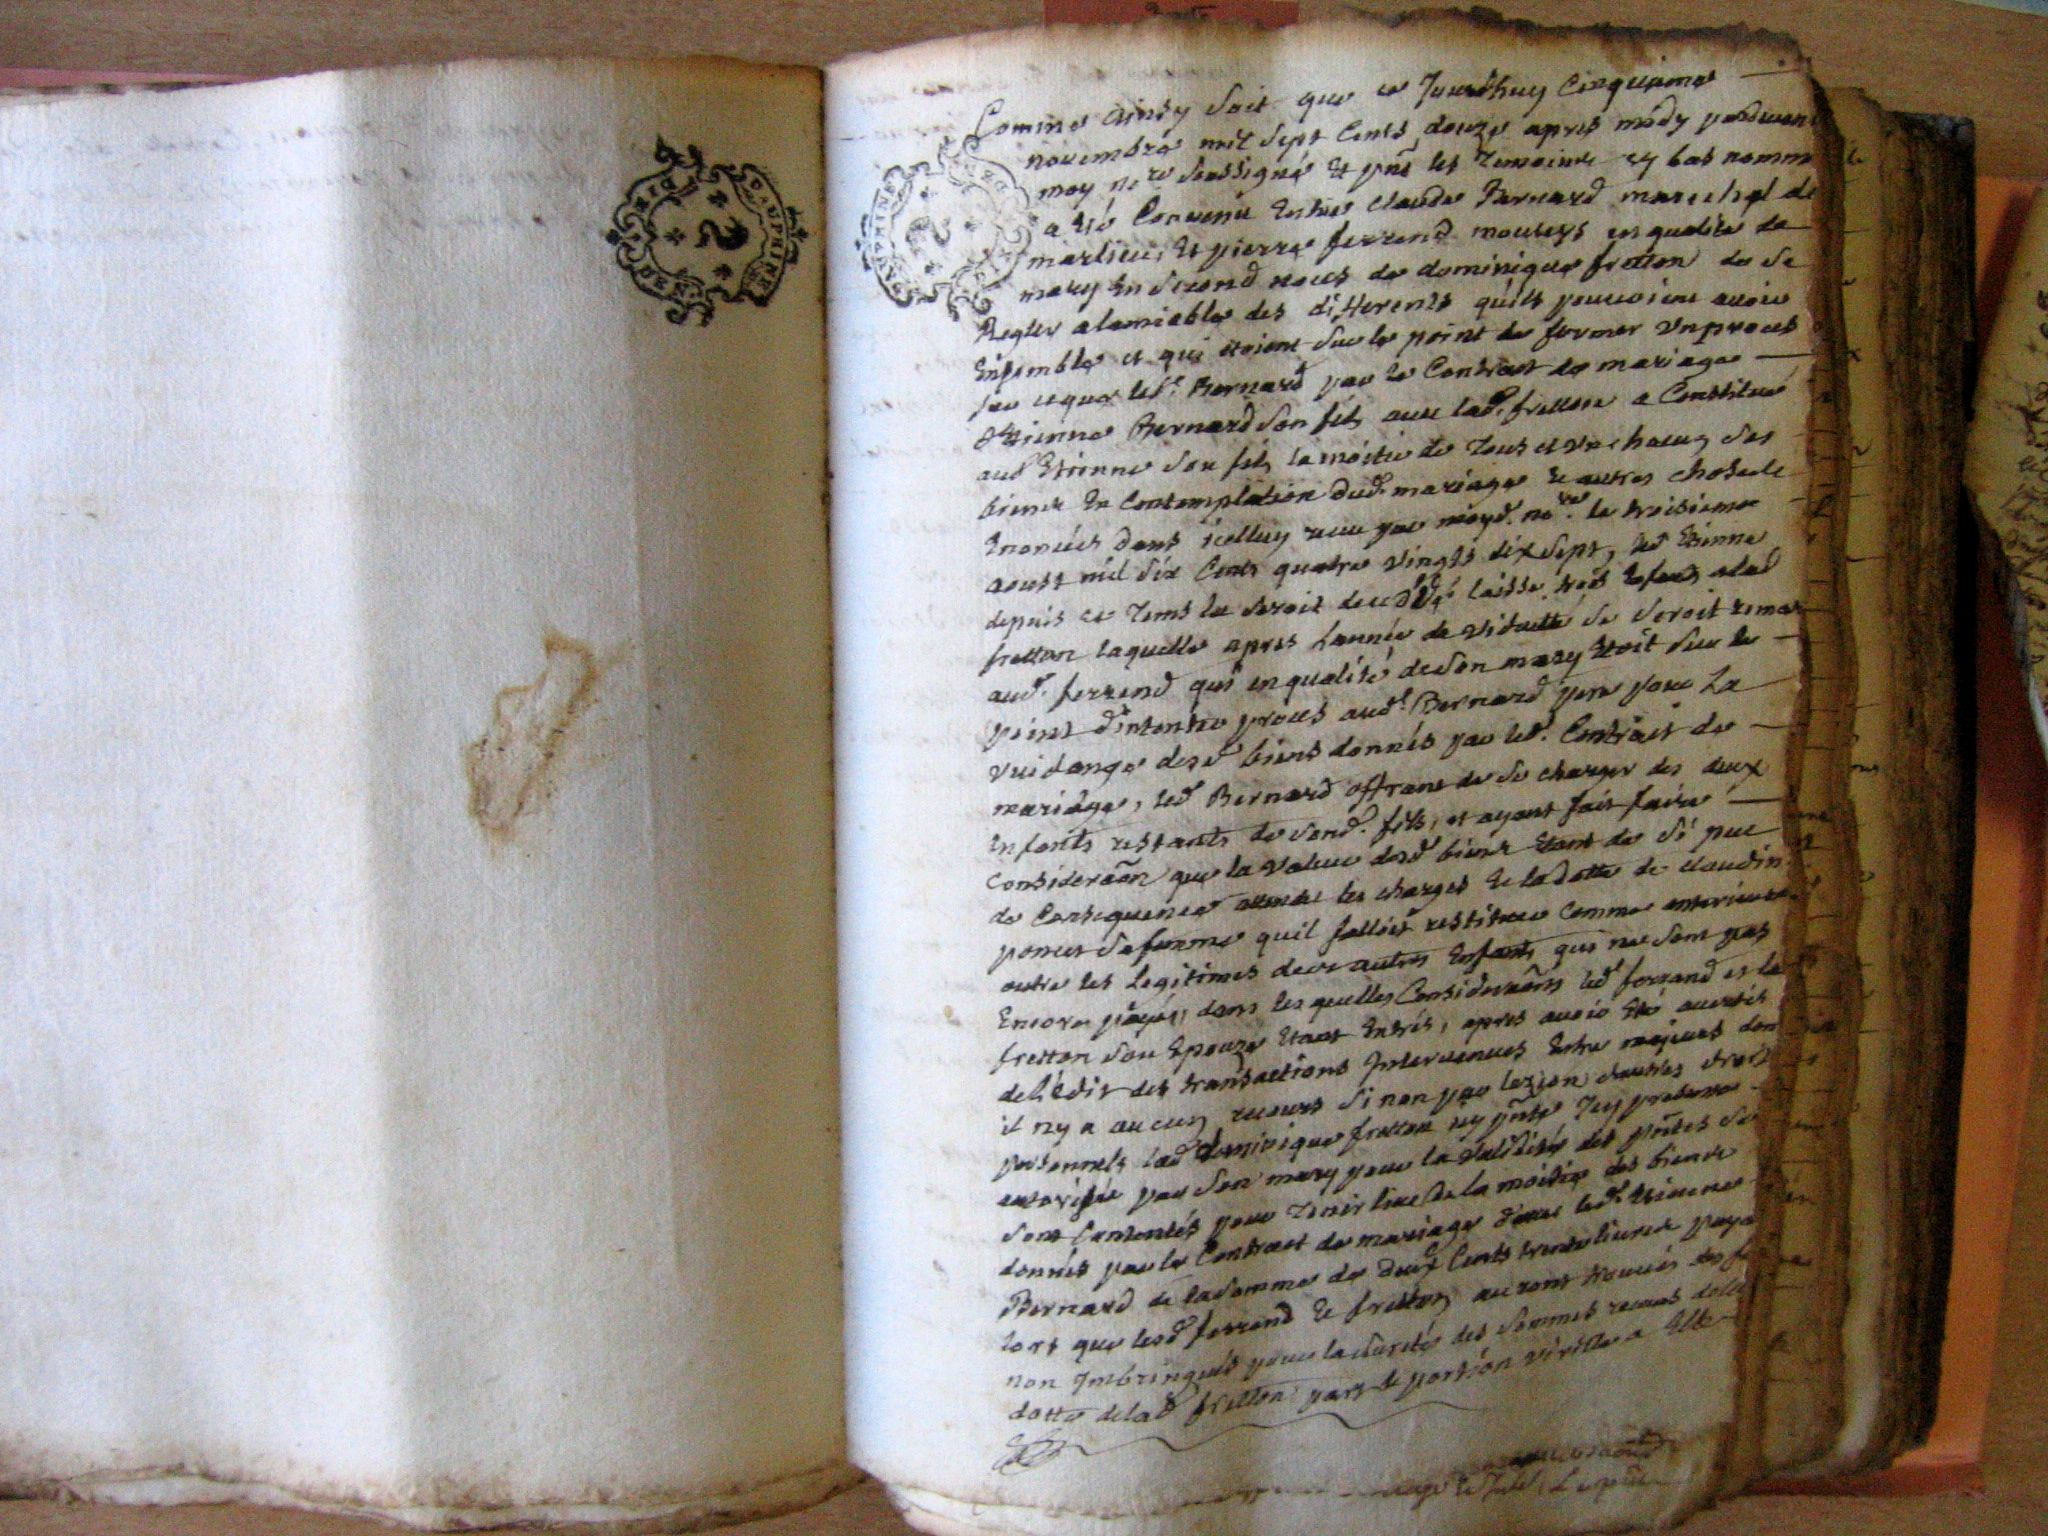 Comme ainsy soit que ce Jourdhuy Cinquieme
novembre mil sept Cents douze apres midy pardevant
moy nore soussigné et pnt les temoins cy bas nomm
a eté Convenu Entre claude Bernard marechal de
marlieu, et pierre ferrend mouleys en qualite de
mary En second noces de dominique fretton de se
Regler alamiable des differents quils pouvoient avoir
Ensemble et qui etoient sur le point de former un proces
sur ceque led. Bernard par le Contract de mariage
d'Etienne Bernard son fils avec lad. fretton a Constitué
aud Etienne son fils la moitie de tous et un chacuns ses
biens En Contemplation dud. mariage et autres choses
Enoncées dans icelluy receu par moyd. nore. le troisieme
aoust mil six Cents quatre vingts dix sept, led Etienne
depuis ce tems la seroit decedé laisse trois Enfens a lad
fretton laquelle apres Lannée de viduité se seroit remar
aud. ferrend qui en qualité de son mary Etoit sur le
point d'intenter proces aud. Bernard pere pour La
vuidange desd biens donnés par led. Contract de
mariage, led Bernard offrant de se charger des deux
Enfants restants de sond. fils, et ayant fait faire
Consideraon que la valeur desd biens Etant de si peu
de Consequence attendu les charges et la dotte de claudin
poncet sa femme quil falloit restituer comme anterieure
outre les Legitimes de ces autres Enfants qui ne sont pas
Encore payés, dans lesquelles Consideraons led ferrand et la
fretton son Epouze Etant Entrés, apres avoir Eté avertis
de l'édit des transactions Intervenues Entre majeurs dont
il ny a aucun recours si non par lezion d'autres droits
personnels lad dominique fretton icy pnte Icy
autorisée par son mary pour la validité des pntes se
sont Contentés pour tenir lieu de la moitie des biens
donnés par le Contract de mariage d'avec led. Etienne
Bernard de la somme de deux Cents trente livres paya
lors que lesd ferrend et fretton auront trouvés des fo
non Imbringués pour la sureté des sommes receues de la
dotte de lad fretton part et portion virille a Elle